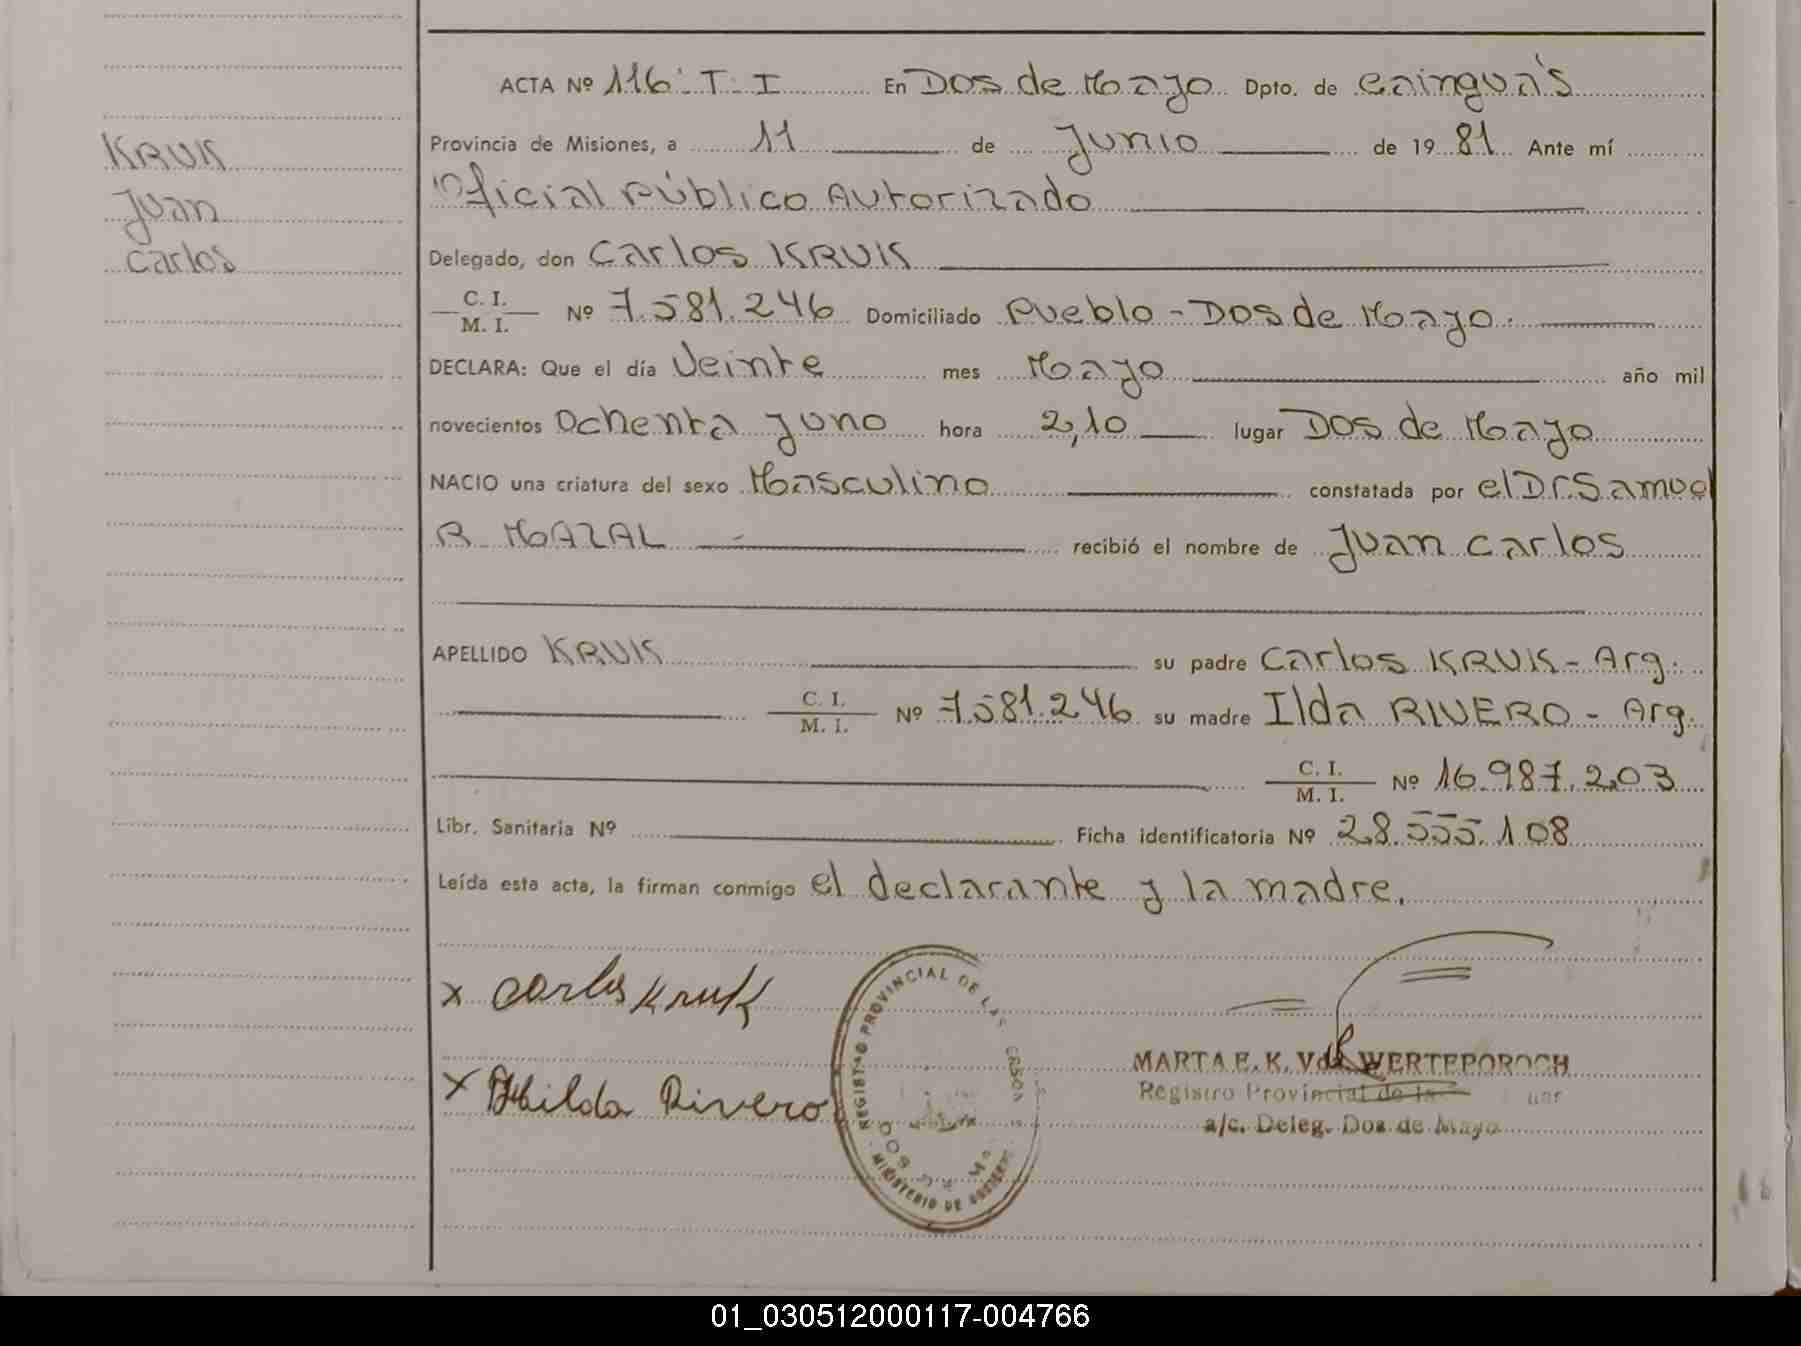 ACTA Nº 116 - T - I En Dos de Mayo Dpto. de Cainguás
KRUK
Juan
Carlos
Provincia de Misiones, a 11 de Junio de 19 81 Ante mí
Oficial Público Autorizado
Delegado, don Carlos KRUK
C. I.
M. I. Nº 7.581.246 Domiciliado Pueblo - Dos de Mayo.
DECLARA: Que el día Veinte mes Mayo año mil
novecientos Ochenta y uno hora 2,10 lugar Dos de Mayo
NACIO una criatura del sexo Masculino constatada por el Dr. Samuel
R. MAZAL recibió el nombre de Juan Carlos
APELLIDO KRUK su padre Carlos KRUK - Arg.
C. I.
M. I. Nº 7.581.246 su madre Ilda RIVERO - Arg.
C. I.
M. I. Nº 16.987.203
Libr. Sanitaria Nº Ficha identificatoria Nº 28.555.108
Leída esta acta, la firman conmigo el declarante y la madre.
x Carlos Kruk
x Hilda Rivero
REGISTRO PROVINCIAL DE LAS
MINISTERIO DE GOBIERNO
DOS DE
MARTA E. K. Vda. WERTEPOROCH
Registro Provincial de las
a/c. Deleg. Dos de Mayo
01_030512000117-004766